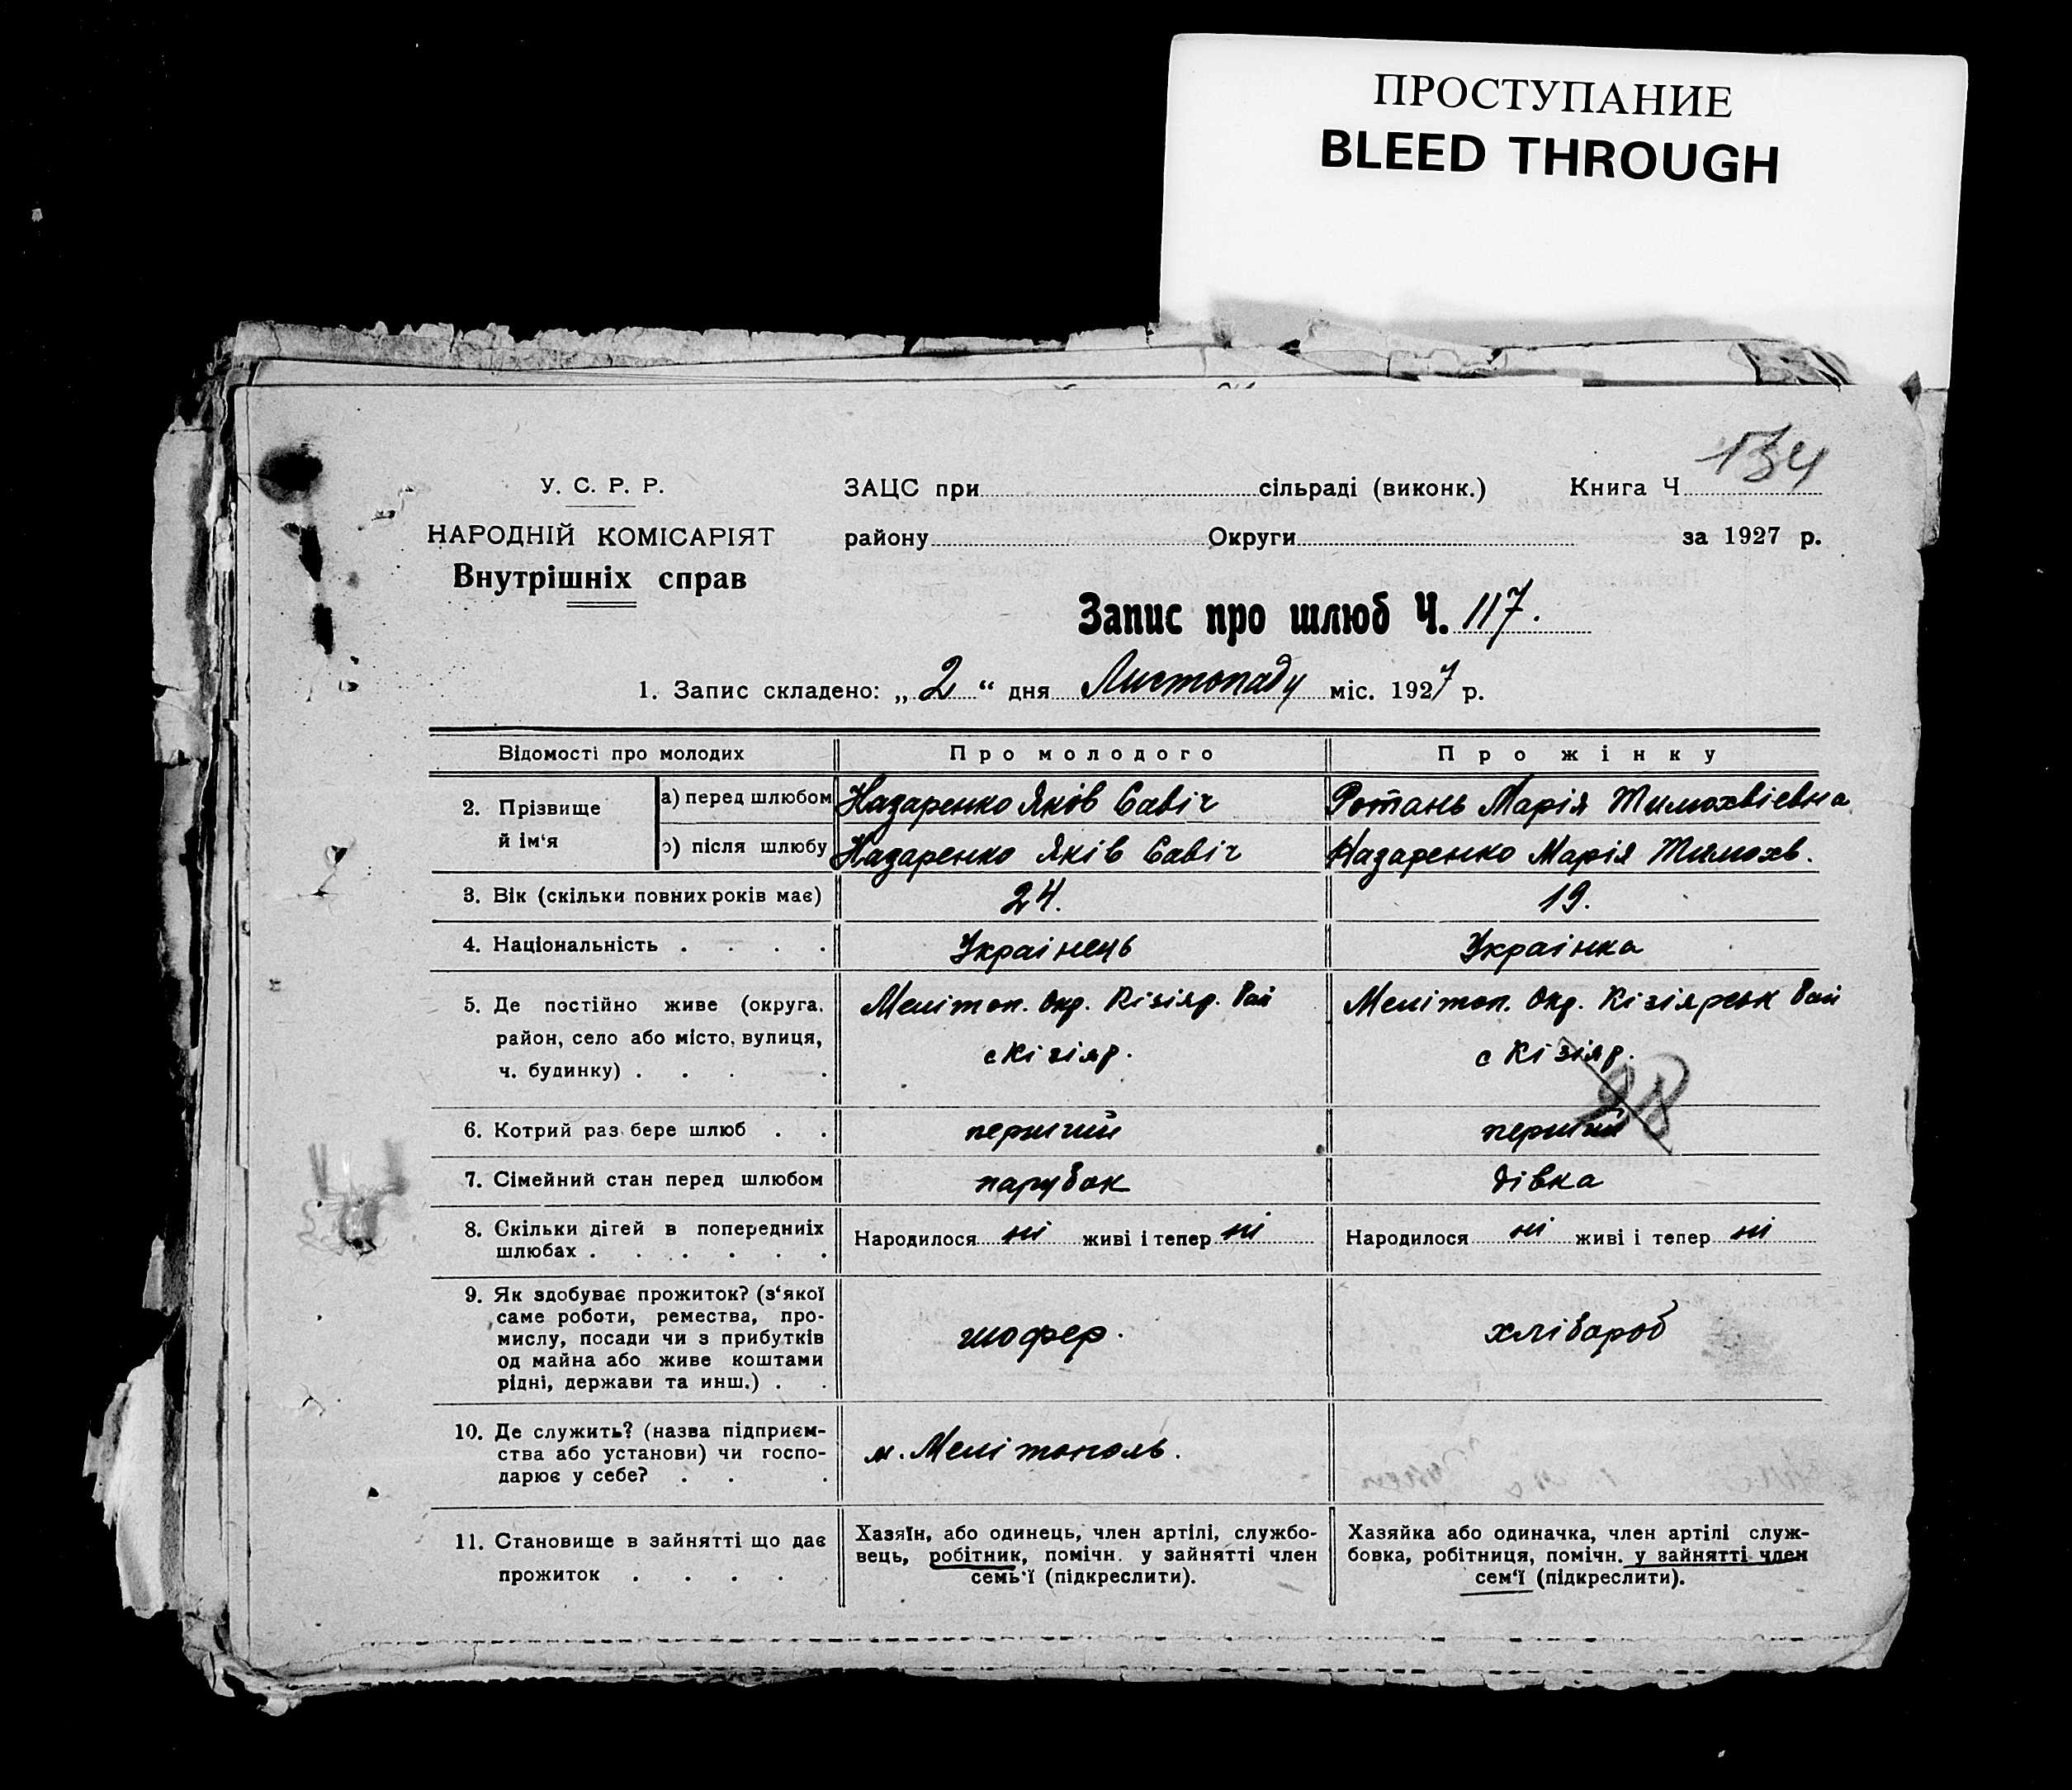 ПРОСТУПАНИЕ
BLEED THROUGH
134
У. С. Р. Р.
НАРОДНІЙ КОМІСАРІЯТ
Внутрішніх справ
ЗАЦС при сільраді (виконк.) Книга Ч
району Округи за 1927 р.
Запис про шлюб Ч. 117.
1. Запис складено: „ 2 “ дня Листопаду міс. 1927 р.
Відомості про молодих Про молодого Про жінку
2. Прізвище й ім‘я
а) перед шлюбом Назаренко Яків Савіч Ротань Марія Тимохвіевна
після шлюбу Назаренко Яків Савіч Назаренко Марія Тимохв.
3. Вік (скільки повних років має) 24. 19.
4. Національність . . . . Українець Українка
5. Де постійно живе (округа, район, село або місто, вулиця, ч. будинку) . . . .
Мелітоп. Окр. Кізіяр. Рай
с Кізіяр.
Мелітоп. Окр. Кізіярськ Рай
с Кізіяр.
98
6. Котрий раз бере шлюб . . перший перший
7. Сімейний стан перед шлюбом парубок дівка
8. Скільки дітей в попередниіх шлюбах . . . . . .
Народилося ні живі і тепер ні
Народилося ні живі і тепер ні
9. Як здобуває прожиток? (з‘якої
саме роботи, ремества, про-
мислу, посади чи з прибутків
од майна або живе коштами
рідні, держави та инш.) . .
шофер.
хлібароб
10. Де служить? (назва підприєм-
ства або установи) чи госпо-
дарює у себе? . . .
м. Мелітополь.
11. Становище в зайнятті що дає
прожиток . . . . .
Хазяїн, або одинець, член артілі, службо-
вець, робітник, помічн. у зайнятті член
семь‘ї (підкреслити).
Хазяйка або одиначка, член артілі служ-
бовка, робітниця, помічн. у зайнятті член
сем‘ї (підкреслити).